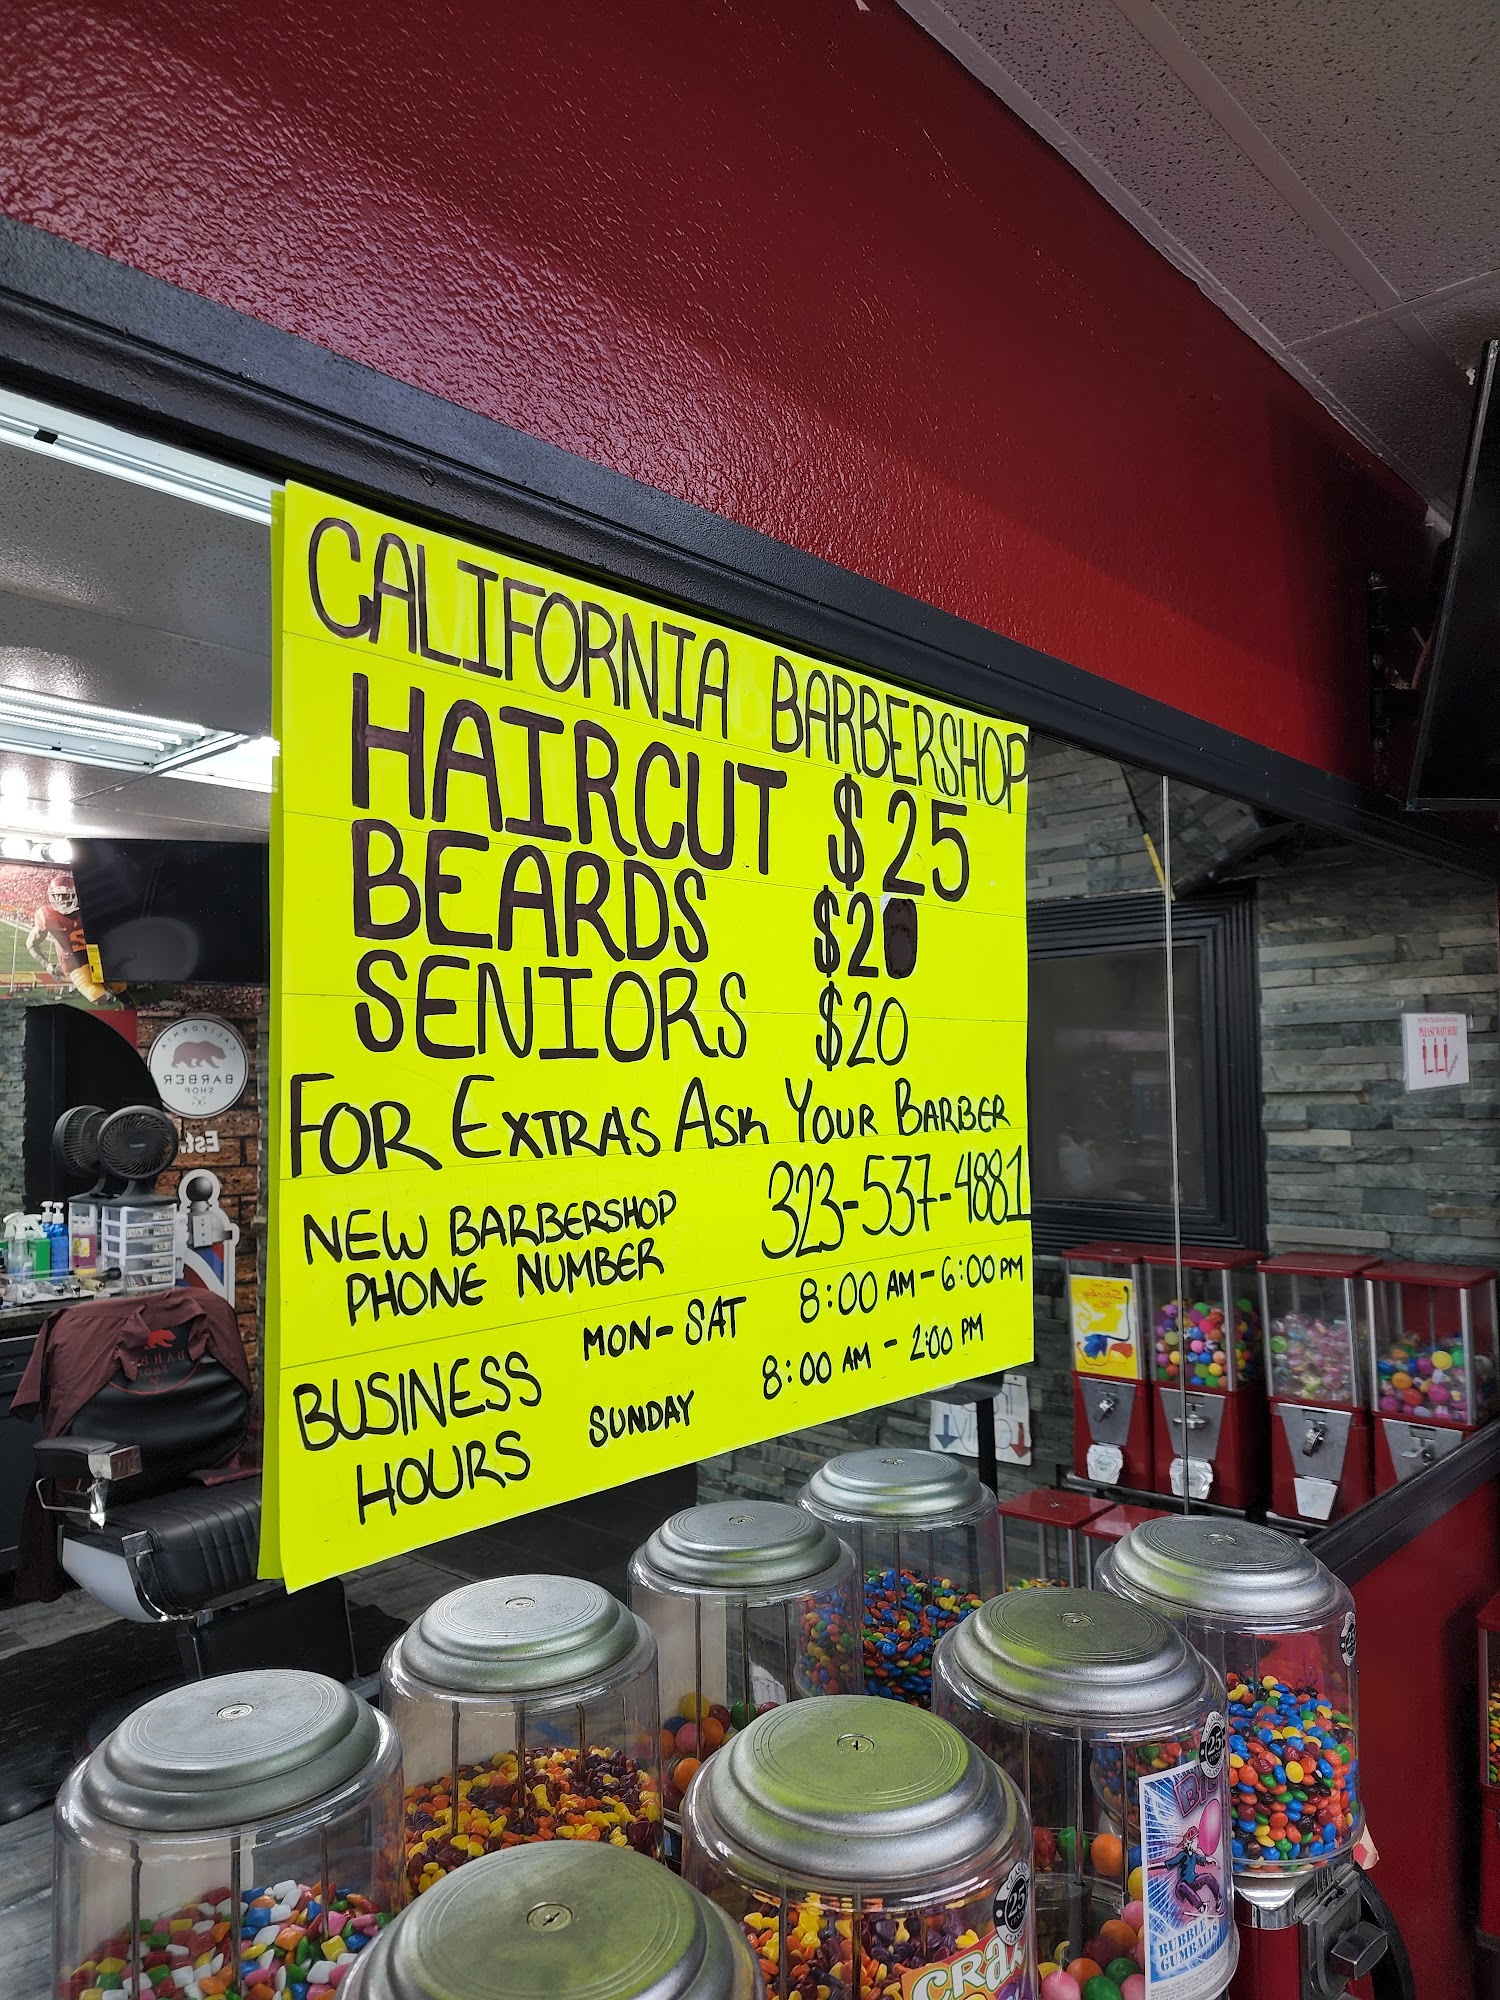 CALIFORNIA BARBERSHOP
HAIRCUT $25
BEARDS $20
SENIORS $20
FOR EXTRAS ASK YOUR BARBER
NEW BARBERSHOP PHONE NUMBER 323-537-4881
BUSINESS HOURS
MON-SAT 8:00 AM-6:00 PM
SUNDAY 8:00 AM-2:00 PM
CALIFORNIA
BARBER
SHOP
Est.
PLEASE WAIT HERE
25
25
BUBBLE
GUMBALLS